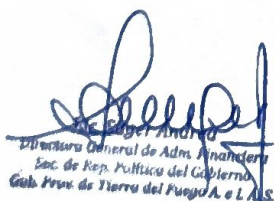 Directora General de Adm. Financiera
Sec. de Rep. Política del Gobierno
Gob. Prov. de Tierra del Fuego A. e I. A. S.